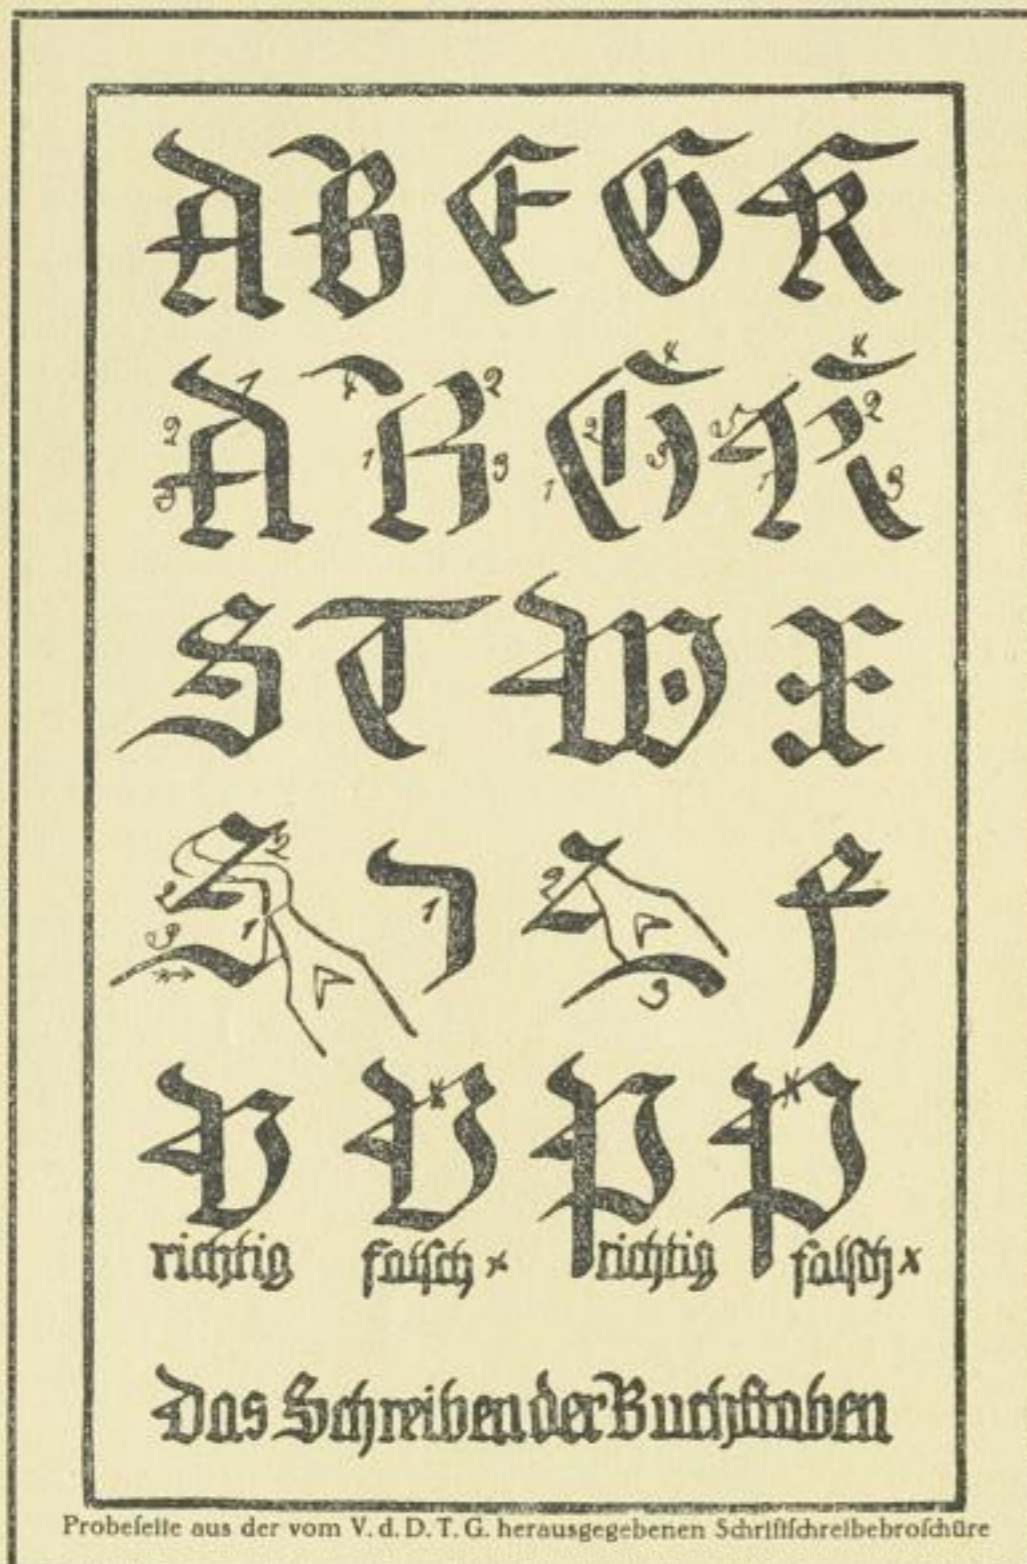 A B E G K
A B G K
S T W X
V V P P
richtig falſch x richtig falſch x
Das Schreiben der Buchſtaben
Probeſeite aus der vom V. d. D. T. G. herausgegebenen Schriftſchreibebroſchüre